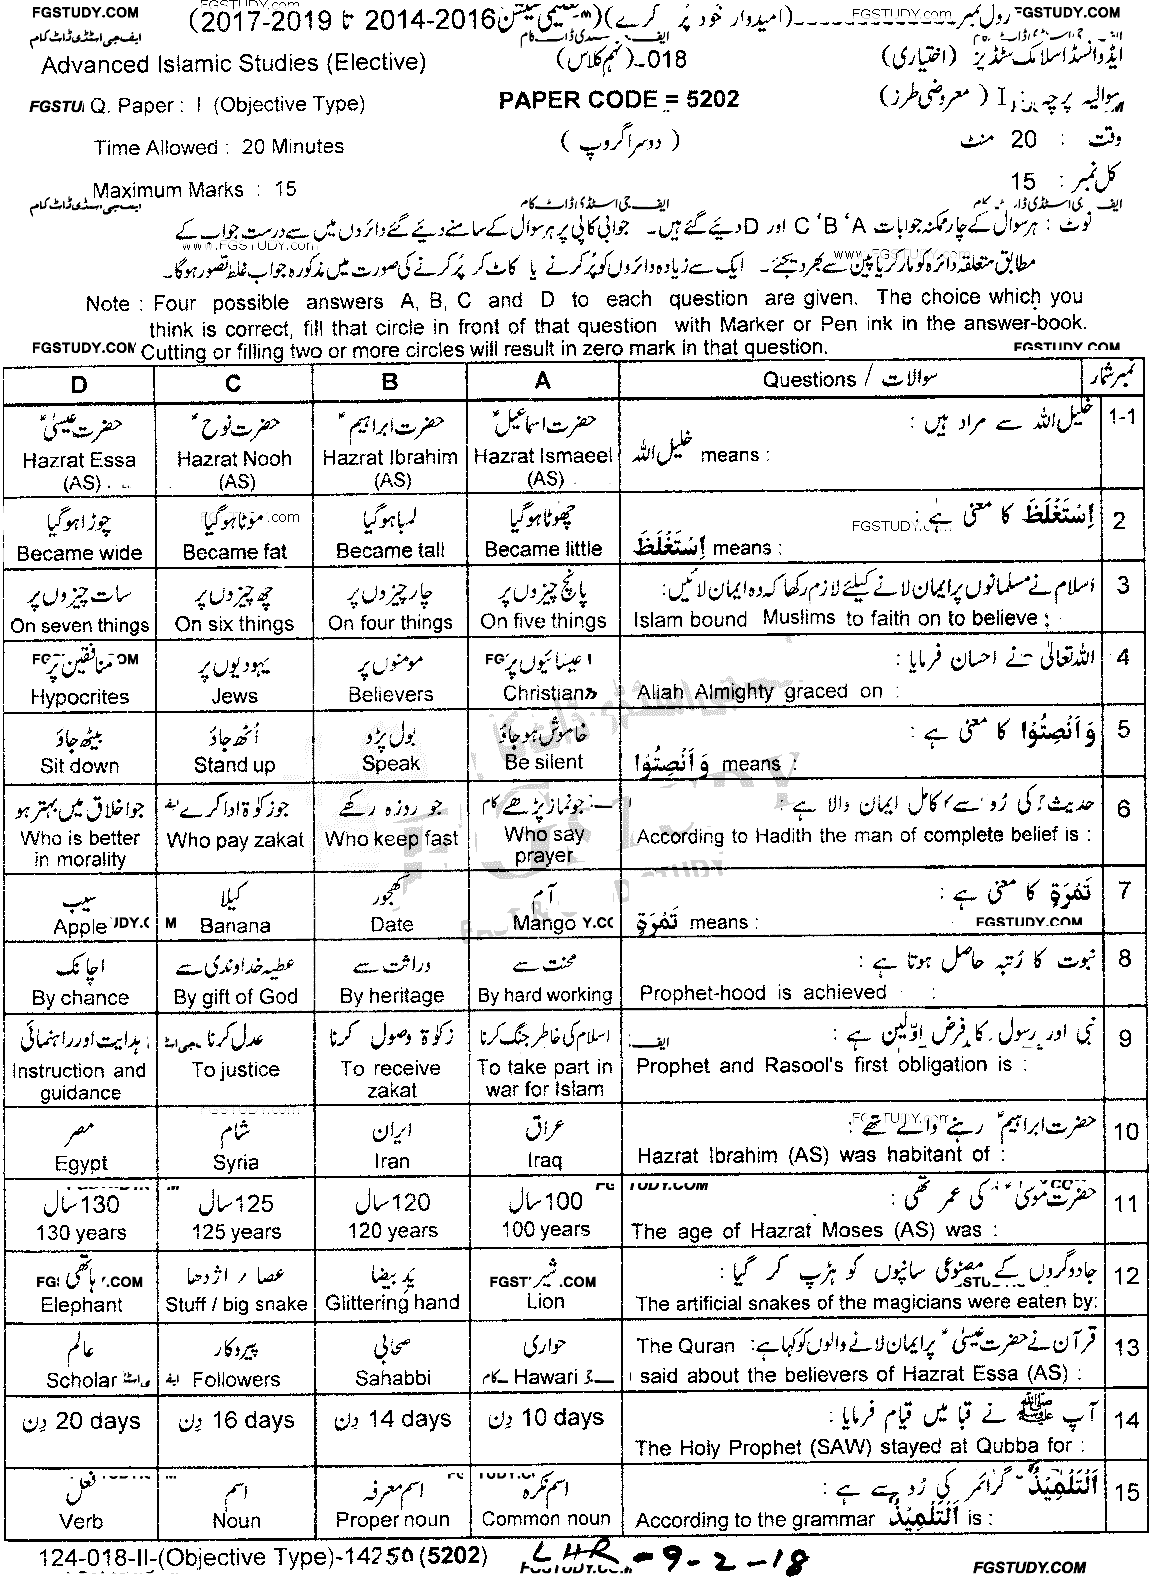 FGSTUDY.COM رول نمبر ------------ (امیدوار خود پُر کرے) (تعلیمی سیشن 2014-2016 تا 2017-2019) FGSTUDY.COM
ایڈوانسڈ اسلامک سٹڈیز (اختیاری) 018-(نہم کلاس) Advanced Islamic Studies (Elective)
سوالیہ پرچہ : I (معروضی طرز) PAPER CODE = 5202 Q. Paper : I (Objective Type)
وقت : 20 منٹ (دوسرا گروپ) Time Allowed : 20 Minutes
کل نمبر : 15 Maximum Marks : 15
ایف جی اسٹڈی ڈاٹ کام
نوٹ : ہر سوال کے چار ممکنہ جوابات A ‘ B ‘ C اور D دیئے گئے ہیں۔ جوابی کاپی پر ہر سوال کے سامنے دیئے گئے دائروں میں سے درست جواب کے
مطابق متعلقہ دائرہ کو مارکر یا پین سے بھر دیجئے۔ ایک سے زیادہ دائروں کو پُر کرنے یا کاٹ کر پُر کرنے کی صورت میں مذکورہ جواب غلط تصور ہوگا۔
Note : Four possible answers A, B, C and D to each question are given. The choice which you
think is correct, fill that circle in front of that question with Marker or Pen ink in the answer-book.
Cutting or filling two or more circles will result in zero mark in that question.
FGSTUDY.COM FGSTUDY.COM
D C B A Questions / سوالات نمبر شمار
1-1 خلیل اللہ سے مراد ہیں :
خلیل اللہ means :
حضرت اسماعیلؑ حضرت ابراہیمؑ حضرت نوحؑ حضرت عیسیٰؑ
Hazrat Essa Hazrat Nooh Hazrat Ibrahim Hazrat Ismaeel
(AS) (AS) (AS) (AS)
2 اِسْتَغْلَظَ کا معنی ہے :
اِسْتَغْلَظَ means :
چھوٹا ہوگیا لمبا ہوگیا موٹا ہوگیا چوڑا ہوگیا
Became wide Became fat Became tall Became little
3 اسلام نے مسلمانوں پر ایمان لانے کیلئے لازم رکھا کہ وہ ایمان لائیں :
Islam bound Muslims to faith on to believe :
پانچ چیزوں پر چار چیزوں پر چھ چیزوں پر سات چیزوں پر
On seven things On six things On four things On five things
4 اللہ تعالیٰ نے احسان فرمایا :
Allah Almighty graced on :
عیسائیوں پر مومنوں پر یہودیوں پر منافقین پر
Hypocrites Jews Believers Christians
5 وَاَنْصِتُوْا کا معنی ہے :
وَاَنْصِتُوْا means :
خاموش ہو جاؤ بول پڑو اُٹھ جاؤ بیٹھ جاؤ
Sit down Stand up Speak Be silent
6 حدیث کی رُو سے کامل ایمان والا ہے :
According to Hadith the man of complete belief is :
جو نماز پڑھے جو روزہ رکھے جو زکوۃ ادا کرے جو اخلاق میں بہتر ہو
Who is better Who pay zakat Who keep fast Who say
in morality prayer
7 تَمْرَةٍ کا معنی ہے :
تَمْرَةٍ means :
آم کھجور کیلا سیب
Apple Banana Date Mango
FGSTUDY.COM
8 نبوت کا رُتبہ حاصل ہوتا ہے :
Prophet-hood is achieved :
محنت سے وراثت سے عطیہ خداوندی سے اچانک
By chance By gift of God By heritage By hard working
9 نبی اور رسول کا فرض اوّلین ہے :
Prophet and Rasool's first obligation is :
اسلام کی خاطر جنگ کرنا زکوٰۃ وصول کرنا عدل کرنا ہدایت اور راہنمائی
Instruction and To justice To receive To take part in
guidance zakat war for Islam
10 حضرت ابراہیمؑ رہنے والے تھے :
Hazrat Ibrahim (AS) was habitant of :
عراق ایران شام مصر
Egypt Syria Iran Iraq
11 حضرت موسیٰؑ کی عمر تھی :
The age of Hazrat Moses (AS) was :
100 سال 120 سال 125 سال 130 سال
130 years 125 years 120 years 100 years
12 جادوگروں کے مصنوعی سانپوں کو ہڑپ کر گیا :
The artificial snakes of the magicians were eaten by:
شیر یدِ بیضا عصا / اژدھا ہاتھی
Elephant Stuff / big snake Glittering hand Lion
13 قرآن نے حضرت عیسیٰؑ پر ایمان لانے والوں کو کہا ہے : The Quran
said about the believers of Hazrat Essa (AS) :
حواری صحابی پیروکار عالم
Scholar Followers Sahabbi Hawari
14 آپ ﷺ نے قبا میں قیام فرمایا :
The Holy Prophet (SAW) stayed at Qubba for :
10 days دِن 14 days دِن 16 days دِن 20 days دِن
15 اَلتِّلْمِيْذُ گرائمر کی رُو سے ہے :
According to the grammar اَلتِّلْمِيْذُ is :
اسم نکرہ اسم معرفہ اسم فعل
Verb Noun Proper noun Common noun
124-018-II-(Objective Type)-14250 (5202) LHR-9-2-18
FGSTUDY.COM